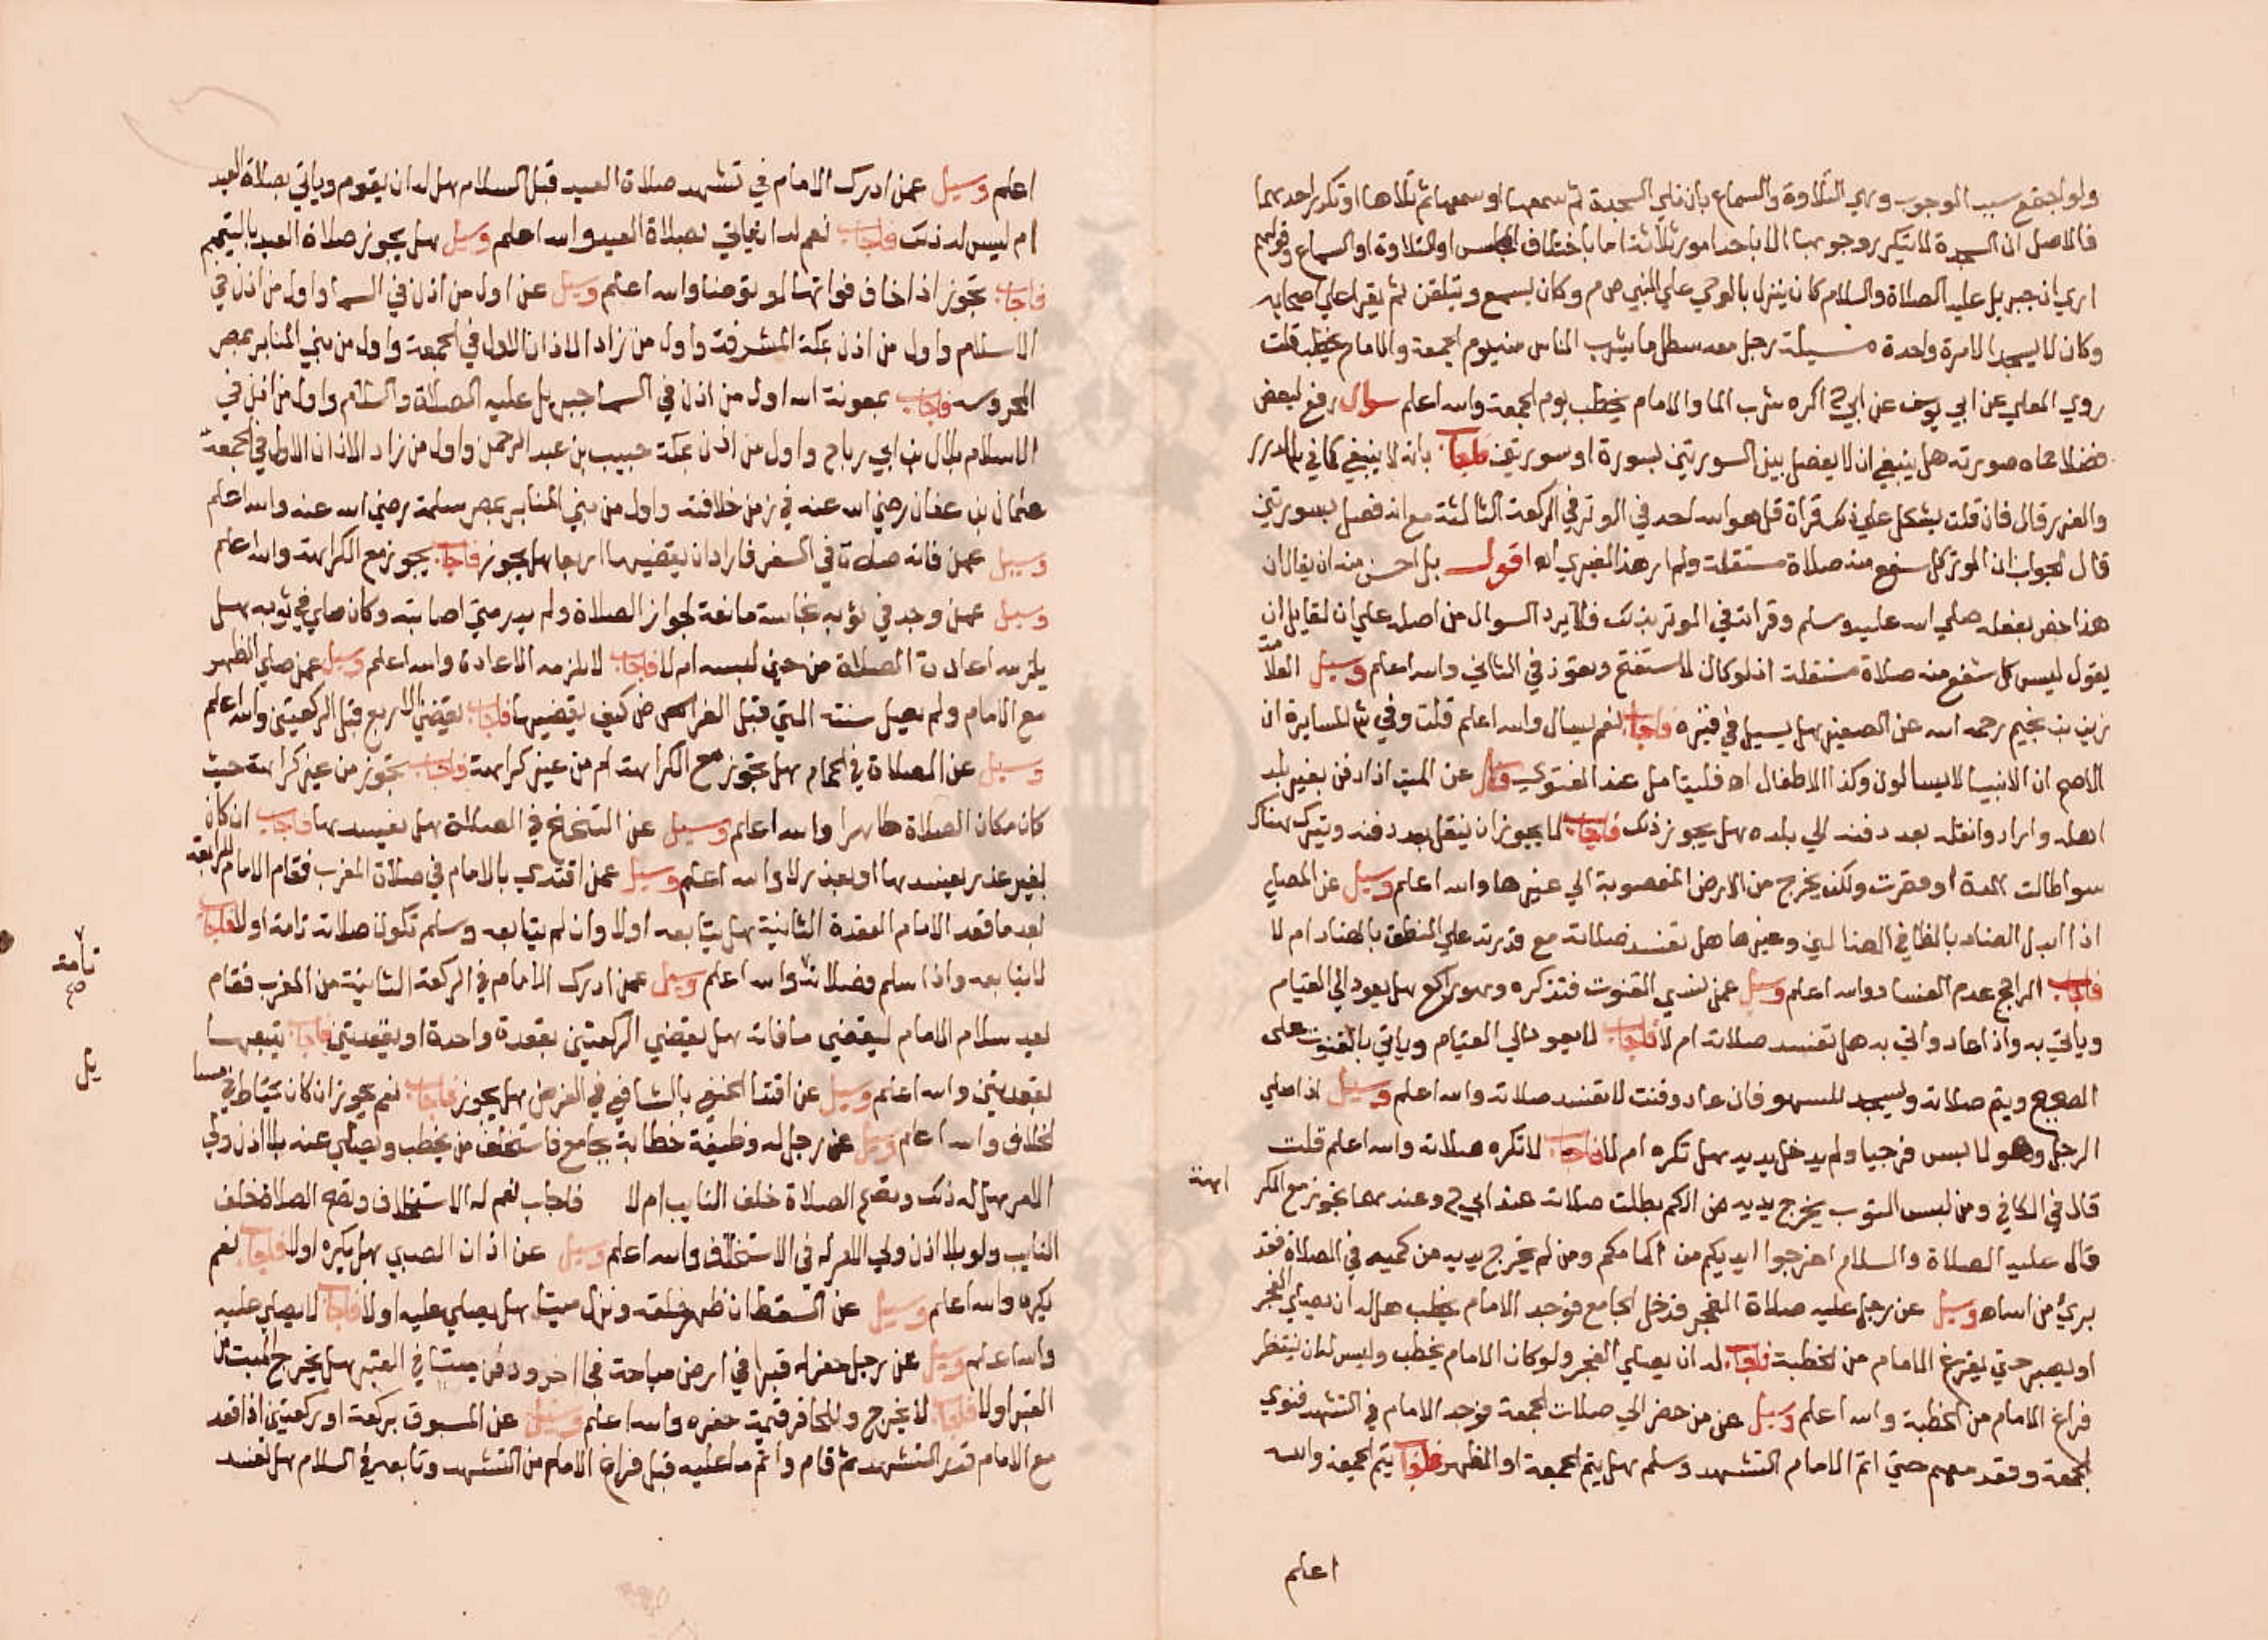 ولو اجتمع سبب الوجوب وهي التلاوة والسماع بان تلي السجدة ثم سمعها او سمعها ثم تلاها او تكرر احدهما
فالاصل ان السجدة لا يتكرر وجوبها الا باحد امور ثلاثة اما باختلاف المجلس او التلاوة او السماع
اري ان جبريل عليه الصلاة والسلام كان ينزل بالوحي علي النبي ص م وكان يسمع ويتلقن ثم يقرا علي صحابه
وكان لا يسجد الا مرة واحدة مسيلة رجل معه سطل ما يشرب الناس منه يوم الجمعة والامام يخطب قلت
روي المعلي عن ابي يوسف عن ابي ح اكره شرب الما والامام يخطب يوم الجمعة والله اعلم سوال رفع لبعض
فضلا حماه صورته هل ينبغي ان لا يفصل بين السورتين بسورة او سورتين فاجاب بانه لا ينبغي كما في الدرر
والغرر قال فان قلت يشكل علي ذلك قراة قل هو الله احد في الوتر في الركعة الثالثة مع انه فصل بسورتين
قال الجواب ان الوتر كل شفع منه صلاة مستقلة ولم ار هذا لغيري اه اقول بل احسن منه ان يقال ان
هذا خص بفعله صلي الله عليه وسلم وقراته في الوتر بذلك فلا يرد السوال من اصله علي ان لقايل ان
يقول ليس كل شفع منه صلاة مستقلة اذ لو كان لا ستفتح وتعوذ في الثاني والله اعلم وسيل العلامة
زين بن نجيم رحمه الله عن الصغير هل يسيل في قبره فاجاب نعم يسال والله اعلم قلت وفي ش المسايرة ان
الاصح ان الانبيا لا يسالون وكذا الاطفال اه فليتامل عند الفتوي وسيل عن الميت اذا دفن بغير بلد
اهله وارادوا نقله بعد دفنه الي بلده هل يجوز ذلك فاجاب لا يجوز ان ينقل بعد دفنه ويترك هناك
سوا طالت المدة او قصرت ولكن يخرج من الارض المغصوبة الي غيرها والله اعلم وسيل عن المصلي
اذا ابدل الضاد بالظا في الضالين وغيرها هل تفسد صلاته مع قدرته علي النطق بالضاد ام لا
فاجاب الراجح عدم الفساد والله اعلم وسيل عمن نسي القنوت فتذكره وهو راكع هل يعود الي القيام
وياتي به واذا عاد واتي به هل تفسد صلاته ام لا فاجاب لا يعود الي القيام وياتي بالقنوت علي
الصحيح ويتم صلاته ويسجد للسهو فان عاد وقنت لا تفسد صلاته والله اعلم وسيل اذا صلي
الرجل وهو لابس فرجيا ولم يدخل يديه هل تكره ام لا فاجاب لا تكره صلاته والله اعلم قلت
قال في الكافي ومن لبس الثوب يخرج يديه من الكم بطلت صلاته عند ابي ح وعندهما تجوز مع الكر
اهة
قال عليه الصلاة والسلام اخرجوا ايديكم من اكمامكم ومن لم يخرج يديه من كميه في الصلاة فقد
بري من اساه وسيل عن رجل عليه صلاة الفجر فدخل الجامع فوجد الامام يخطب هل له ان يصلي الفجر
او يصبر حتي يفرغ الامام من الخطبة فاجاب له ان يصلي الفجر ولو كان الامام يخطب وليس له ان ينتظر
فراغ الامام من الخطبة والله اعلم وسيل عن من حضر الي صلات الجمعة فوجد الامام في التشهد فنوي
الجمعة وقعد معهم حتي اتم الامام التشهد وسلم هل يتم الجمعة او الظهر فاجاب يتم الجمعة والله
اعلم
اعلم وسيل عمن ادرك الامام في تشهد صلاة العيد قبل السلام هل له ان يقوم وياتي بصلاة العيد
ام ليس له ذلك فاجاب نعم له ان ياتي بصلاة العيد والله اعلم وسيل هل يجوز صلاة العيد بالتيمم
فاجاب تجوز اذا خاف فواتها لو توضا والله اعلم وسيل عن اول من اذن في السما واول من اذن في
الاسلام واول من اذن بمكة المشرفة واول من زاد الاذان الاول في الجمعة واول من بني المنابر بمصر
المحروسه فاجاب بمعونة الله اول من اذن في السما جبريل عليه الصلاة والسلام واول من اذن في
الاسلام بلال بن ابي رباح واول من اذن بمكة حبيب بن عبد الرحمن واول من زاد الاذان الاول في الجمعة
عثمان بن عفان رضي الله عنه في زمن خلافته واول من بني المنابر بمصر سلمة رضي الله عنه والله اعلم
وسيل عمن فاته صلاة في السفر فاراد ان يقضيها اربعا هل يجوز فاجاب يجوز مع الكراهة والله اعلم
وسيل عمن وجد في ثوبه نجاسة مانعة لجواز الصلاة ولم يدر متي اصابته وكان صلي في ثوبه هل
يلزمه اعادة الصلاة من حين لبسه ام لا فاجاب لا يلزمه الاعادة والله اعلم وسيل عمن صلي الظهر
مع الامام ولم يصل سنته التي قبل الفرض كيف يقضيها فاجاب يقضي الاربع قبل الركعتين والله اعلم
وسيل عن الصلاة في الحمام هل تجوز مع الكراهة ام من غير كراهة فاجاب تجوز من غير كراهة حيث
كان مكان الصلاة طاهرا والله اعلم وسيل عن التنحنح في الصلاة هل يفسدها فاجاب ان كان
بغير عذر يفسدها او بعذر لا والله اعلم وسيل عمن اقتدي بالامام في صلاة المغرب فقام الامام للرابعة
بعد ما قعد الامام القعدة الثانية هل يتابعه اولا وان لم يتابعه وسلم تكون صلاته تامة اولا فاجاب
لا يتابعه واذا سلم فصلاته والله اعلم وسيل عمن ادرك الامام في الركعة الثانية من المغرب فقام
تامة
صح
بعد سلام الامام ليقضي ما فاته هل يقضي الركعتين بقعدة واحدة او بقعدتين فاجاب يتبعها
بقعدتين والله اعلم وسيل عن اقتدا الحنفي بالشافعي في الفرض هل يجوز فاجاب نعم يجوز ان كان يحتاط في مسا
يل
الخلاف والله اعلم وسيل عن رجل له وظيفة خطابة بجامع فاستخلف من يخطب ويصلي عنه بلا اذن ولي
الامر هل له ذلك وتصح الصلاة خلف النايب ام لا فاجاب نعم له الاستخلاف وتصح الصلاة خلف
النايب ولو بلا اذن ولي الامر له في الاستخلاف والله اعلم وسيل عن اذان الصبي هل يكره اولا فاجاب نعم
يكره والله اعلم وسيل عن السقط ان ظهر خلقه ونزل ميتا هل يصلي عليه اولا فاجاب لا يصلي عليه
والله اعلم وسيل عن رجل حفر له قبرا في ارض مباحة فجا اخر ودفن ميتا في القبر هل يخرج الميت من
القبر اولا فاجاب لا يخرج وللحافر قيمة حفره والله اعلم وسيل عن المسبوق بركعة او ركعتين اذا قعد
مع الامام قدر التشهد ثم قام واتم ما عليه قبل فراغ الامام من التشهد وتابعه في السلام هل تفسد